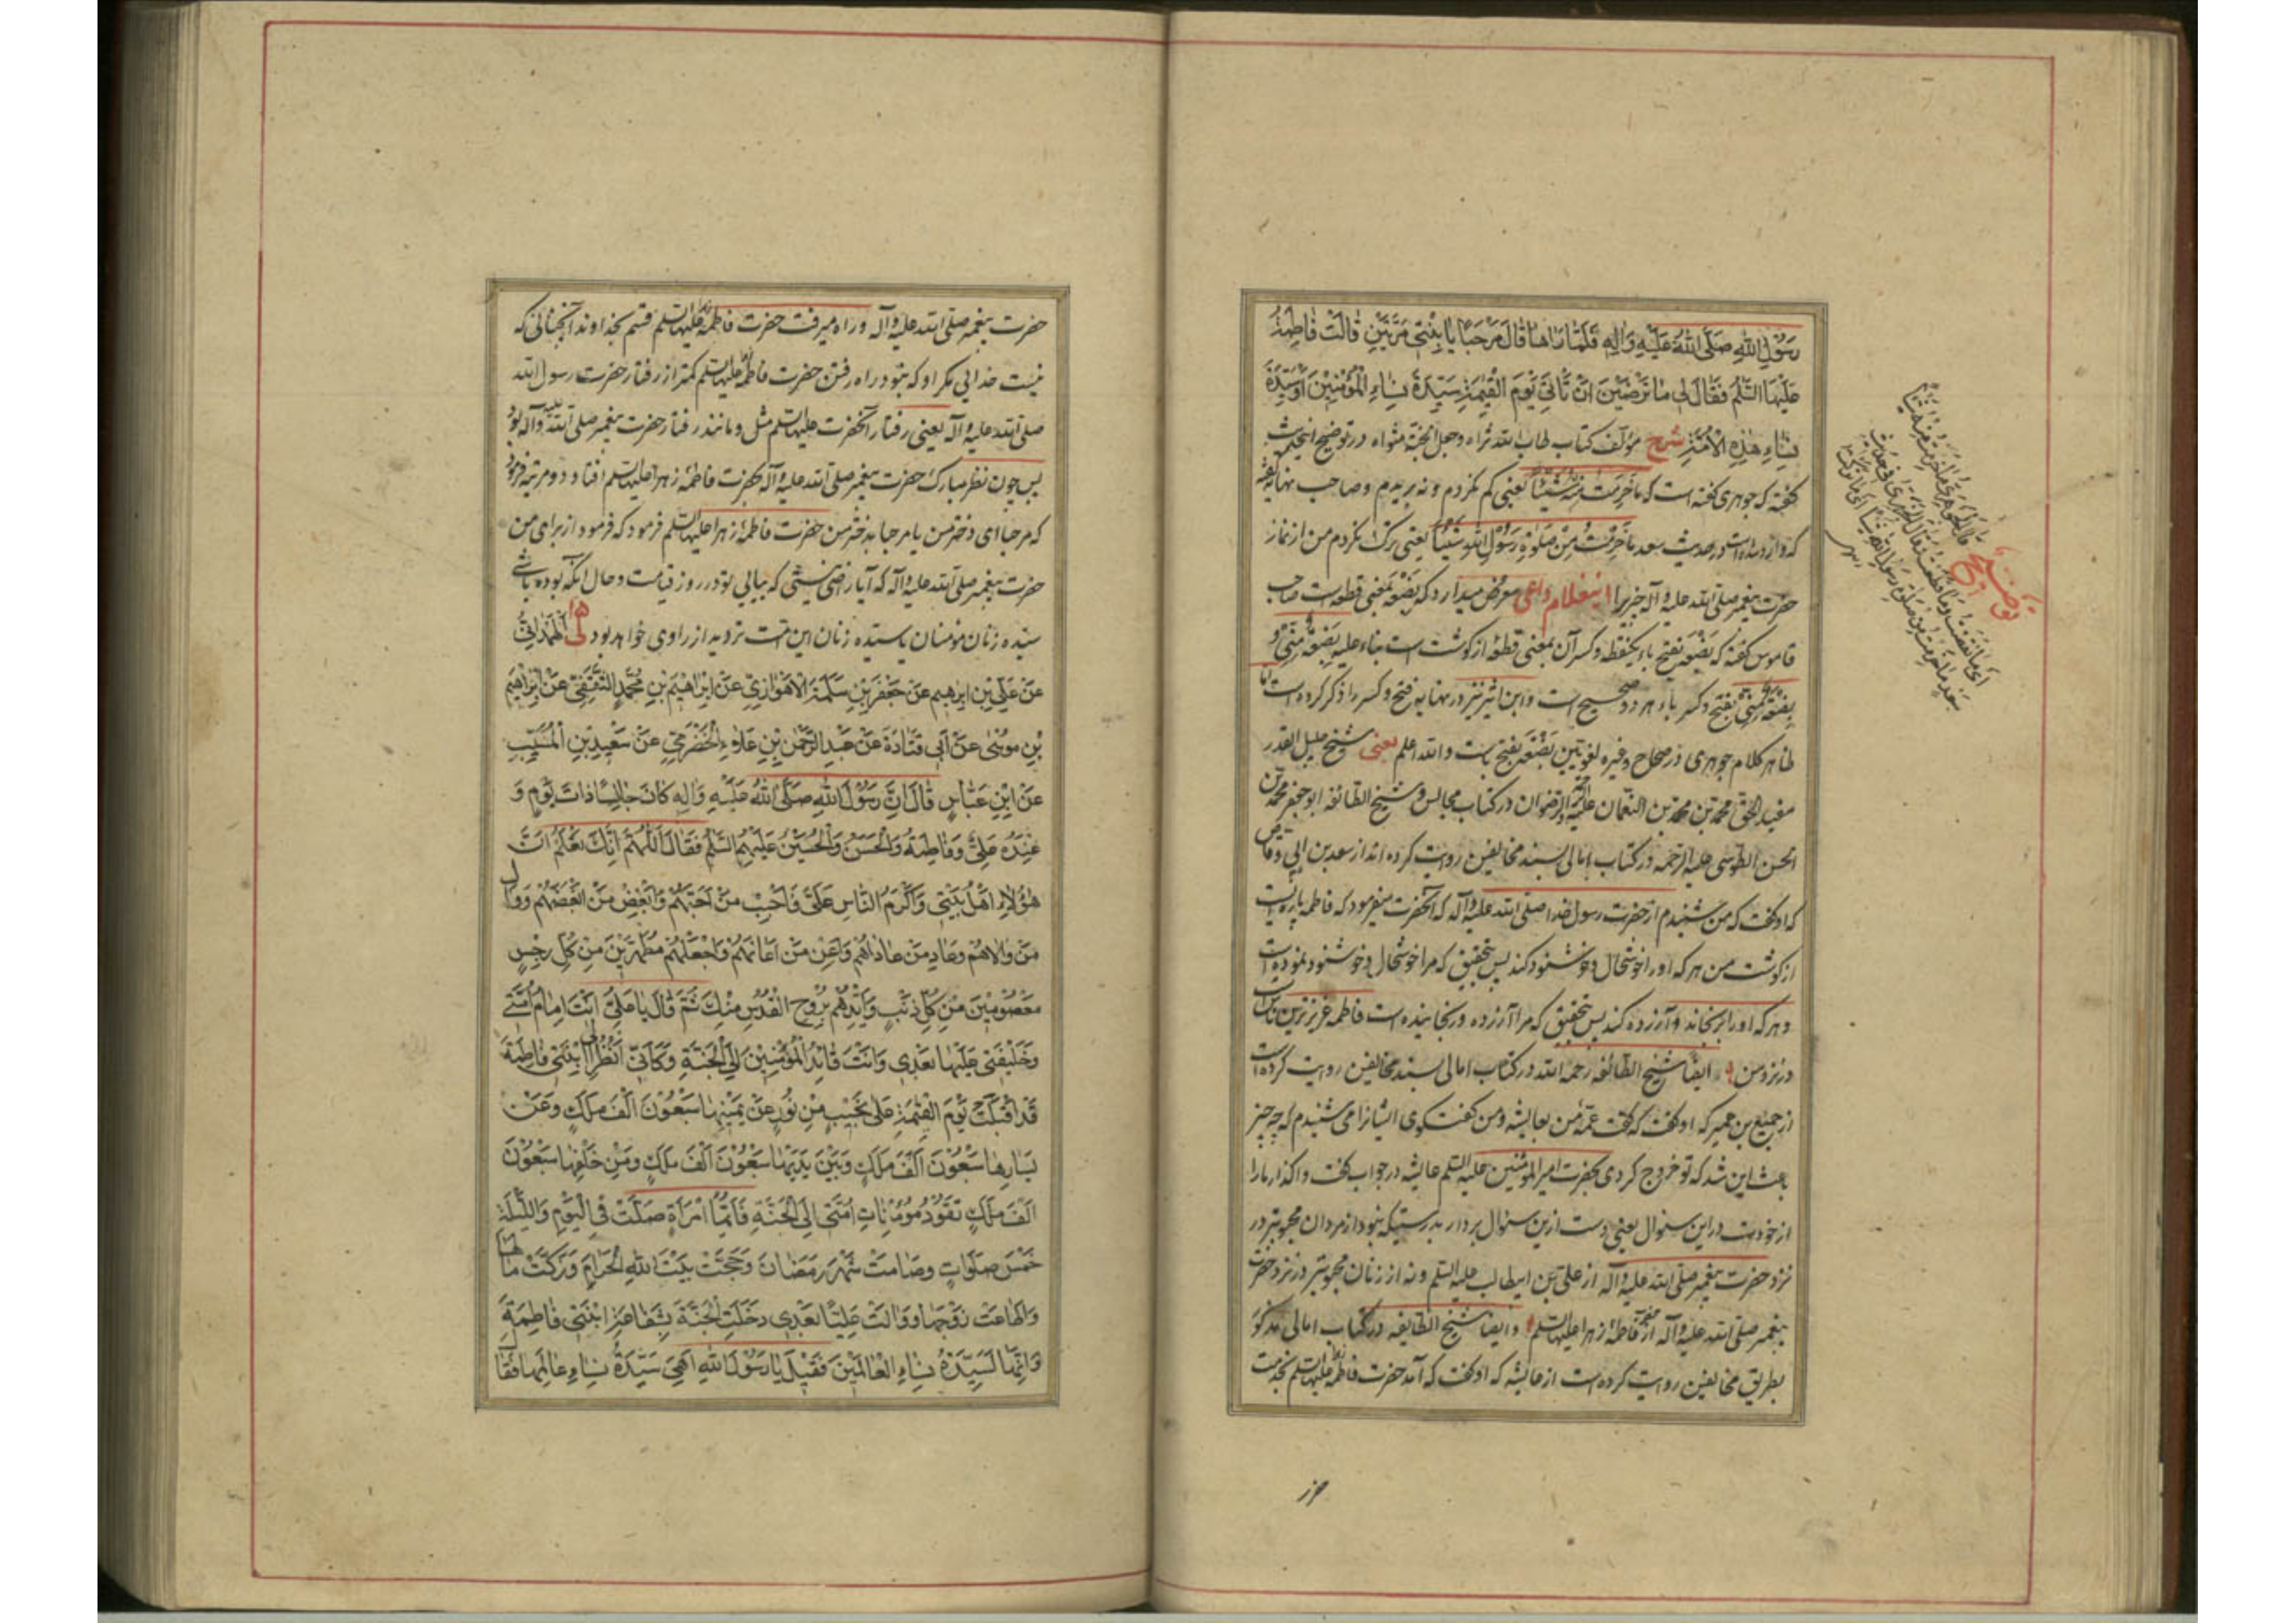 رَسُوْلِ اللّٰهِ صَلَّى اللّٰهُ عَلَيْهِ وَاٰلِهِ فَلَمَّا رَاٰهَا قَالَ مَرْحَبًا يَا بِنْتِيْ مَرَّتَيْنِ قَالَتْ فَاطِمَةُ
عَلَيْهَا السَّلٰمُ فَقَالَ لِيْ اَمَا تَرْضَيْنَ اَنْ تَأْتِيَ يَوْمَ الْقِيٰمَةِ سَيِّدَةَ نِسَاءِ الْمُؤْمِنِيْنَ اَوْ سَيِّدَةَ
نِسَاءِ هٰذِهِ الْاُمَّةِ شرح مؤلف کتاب طاب الله ثراه وجعل الجنة مثواه در توضیح این حدیث
گفته که جوهری گفته است که مَا خَرَمْتُ مِنْهُ شَيْئًا یعنی کم نکردم و نه بریدم و صاحب نهایه گفته
که وارد شده است در حدیث سعد مَا خَرَمْتُ مِنْ صَلٰوةِ رَسُوْلِ اللّٰهِ شَيْئًا یعنی ترک نکردم من از نماز
حضرت پیغمبر صلی الله علیه وآله چیزیرا اینغلام داعی معروض میدارد که بَضْعَه بمعنی قطعه است صاحب
قاموس گفته که بَضْعَه بفتح باء یکنقطه وکسر آن بمعنی قطعه از گوشت است بناء علیه بَضْعَةٌ مِنِّيْ و
بِضْعَةٌ مِنِّيْ بفتح وکسر باء هر دو صحیح است وابن اثیر نیز در نهایه فتح وکسر را ذکر کرده است اما
ظاهر کلام جوهری در صحاح وغیره لغویین بَضْعَه بفتح است والله اعلم یعنی وشیخ جلیل القدر
مفید الحق محمد بن محمد بن النعمان علیه الرضوان در کتاب مجالس وشیخ الطائفه ابوجعفر محمد بن
الحسن الطوسی علیه الرحمه در کتاب امالی بسند مخالفین روایت کرده اند از سعد بن ابی وقاص
که او گفت که من شنیدم از حضرت رسول خدا صلی الله علیه وآله که آنحضرت میفرمود که فاطمه پاره ایست
از گوشت من هر که او را خوشحال وخوشنود کند پس بتحقیق که مرا خوشحال وخوشنود نموده است
وهر که او را برنجاند وآزرده کند پس بتحقیق که مرا آزرده ورنجانیده است فاطمه عزیزترین ناس است
در نزد من ایضا شیخ الطائفه رحمه الله در کتاب امالی بسند مخالفین روایت کرده است
از جمیع بن عمیر که او گفت که گفت عمهٔ من بعایشه ومن گفتگوی ایشانرا می شنیدم که چه چیز
باعث این شد که تو خروج کردی بحضرت امیر المؤمنین علیه السلم عایشه در جواب گفت واگذار ما را
از خودت در این سئوال یعنی دست ازین سئوال بردار بدرستیکه نبود از مردان محبوبتر در
نزد حضرت پیغمبر صلی الله علیه وآله از علی بن ابیطالب علیه السلم ونه از زنان محبوبتر در نزد حضرت
پیغمبر صلی الله علیه وآله از حضرت فاطمهٔ زهرا علیها السلم وایضا شیخ الطایفه در کتاب امالی مذکور
بطریق مخالفین روایت کرده است از عایشه که او گفت که آمد حضرت فاطمه علیها السلم بخدمت
توضیح
حضرت پیغمبر صلی الله علیه وآله وراه میرفت حضرت فاطمهٔ زهرا علیها السلم قسم بخداوند آنچنانی که
نیست خدائی مگر او که نبود راه رفتن حضرت فاطمه علیها السلم کمتر از رفتار حضرت رسول الله
صلی الله علیه وآله یعنی رفتار آنحضرت علیها السلم مثل ومانند رفتار حضرت پیغمبر صلی الله علیه وآله بود
پس چون نظر مبارک حضرت پیغمبر صلی الله علیه وآله بحضرت فاطمهٔ زهرا علیها السلم افتاد دو مرتبه فرمود
که مرحبا ای دختر من یا مرحبا بدختر من حضرت فاطمهٔ زهرا علیها السلم فرمود که فرمود از برای من
حضرت پیغمبر صلی الله علیه وآله که آیا راضی نیستی که بیائی تو در روز قیامت وحال آنکه بوده باشی
سیده زنان مؤمنان یا سیدهٔ زنان این امت تردید از راوی خواهد بود لی اَلْهَمْدَانِيُّ
عَنْ عَلِيِّ بْنِ اِبْرٰهِيْمَ عَنْ جَعْفَرِ بْنِ سَلَمَةَ الْاَهْوَازِيِّ عَنْ اِبْرَاهِيْمَ بْنِ مُحَمَّدٍ الثَّقَفِيِّ عَنْ اِبْرَاهِيْمَ
بْنِ مُوْسٰى عَنْ اَبِيْ قَتَادَةَ عَنْ عَبْدِ الرَّحْمٰنِ بْنِ عَلَاءِ الْحَضْرَمِيِّ عَنْ سَعِيْدِ بْنِ الْمُسَيَّبِ
عَنْ اِبْنِ عَبَّاسٍ قَالَ اِنَّ رَسُوْلَ اللّٰهِ صَلَّى اللّٰهُ عَلَيْهِ وَاٰلِهِ كَانَ جَالِسًا ذَاتَ يَوْمٍ وَ
عِنْدَهُ عَلِيٌّ وَفَاطِمَةُ وَالْحَسَنُ وَالْحُسَيْنُ عَلَيْهِمُ السَّلٰمُ فَقَالَ اَللّٰهُمَّ اِنَّكَ تَعْلَمُ اَنَّ
هٰؤُلَاءِ اَهْلُ بَيْتِيْ وَاَكْرَمُ النَّاسِ عَلَيَّ فَاَحْبِبْ مَنْ اَحَبَّهُمْ وَاَبْغِضْ مَنْ اَبْغَضَهُمْ وَوَالِ
مَنْ وَالَاهُمْ وَعَادِ مَنْ عَادَاهُمْ وَاَعِنْ مَنْ اَعَانَهُمْ وَاجْعَلْهُمْ مُطَهَّرِيْنَ مِنْ كُلِّ رِجْسٍ
مَعْصُوْمِيْنَ مِنْ كُلِّ ذَنْبٍ وَاَيِّدْهُمْ بِرُوْحِ الْقُدُسِ مِنْكَ ثُمَّ قَالَ يَا عَلِيُّ اَنْتَ اِمَامُ اُمَّتِيْ
وَخَلِيْفَتِيْ عَلَيْهَا بَعْدِيْ وَاَنْتَ قَائِدُ الْمُؤْمِنِيْنَ اِلَى الْجَنَّةِ وَكَاَنِّيْ اَنْظُرُ اِلٰى اِبْنَتِيْ فَاطِمَةَ
قَدْ اَقْبَلَتْ يَوْمَ الْقِيٰمَةِ عَلٰى نَجِيْبٍ مِنْ نُوْرٍ عَنْ يَمِيْنِهَا سَبْعُوْنَ اَلْفَ مَلَكٍ وَعَنْ
يَسَارِهَا سَبْعُوْنَ اَلْفَ مَلَكٍ وَبَيْنَ يَدَيْهَا سَبْعُوْنَ اَلْفَ مَلَكٍ وَمِنْ خَلْفِهَا سَبْعُوْنَ
اَلْفَ مَلَكٍ تَقُوْدُ مُؤْمِنَاتِ اُمَّتِيْ اِلَى الْجَنَّةِ فَاَيُّمَا امْرَاَةٍ صَلَّتْ فِي الْيَوْمِ وَاللَّيْلَةِ
خَمْسَ صَلَوَاتٍ وَصَامَتْ شَهْرَ رَمَضَانَ وَحَجَّتْ بَيْتَ اللّٰهِ الْحَرَامَ وَزَكَّتْ مَالَهَا
وَاَطَاعَتْ زَوْجَهَا وَوَالَتْ عَلِيًّا بَعْدِيْ دَخَلَتِ الْجَنَّةَ بِشَفَاعَةِ ابْنَتِيْ فَاطِمَةَ
وَاِنَّهَا لَسَيِّدَةُ نِسَاءِ الْعَالَمِيْنَ فَقِيْلَ يَا رَسُوْلَ اللّٰهِ اَهِيَ سَيِّدَةُ نِسَاءِ عَالَمِهَا فَقَالَ